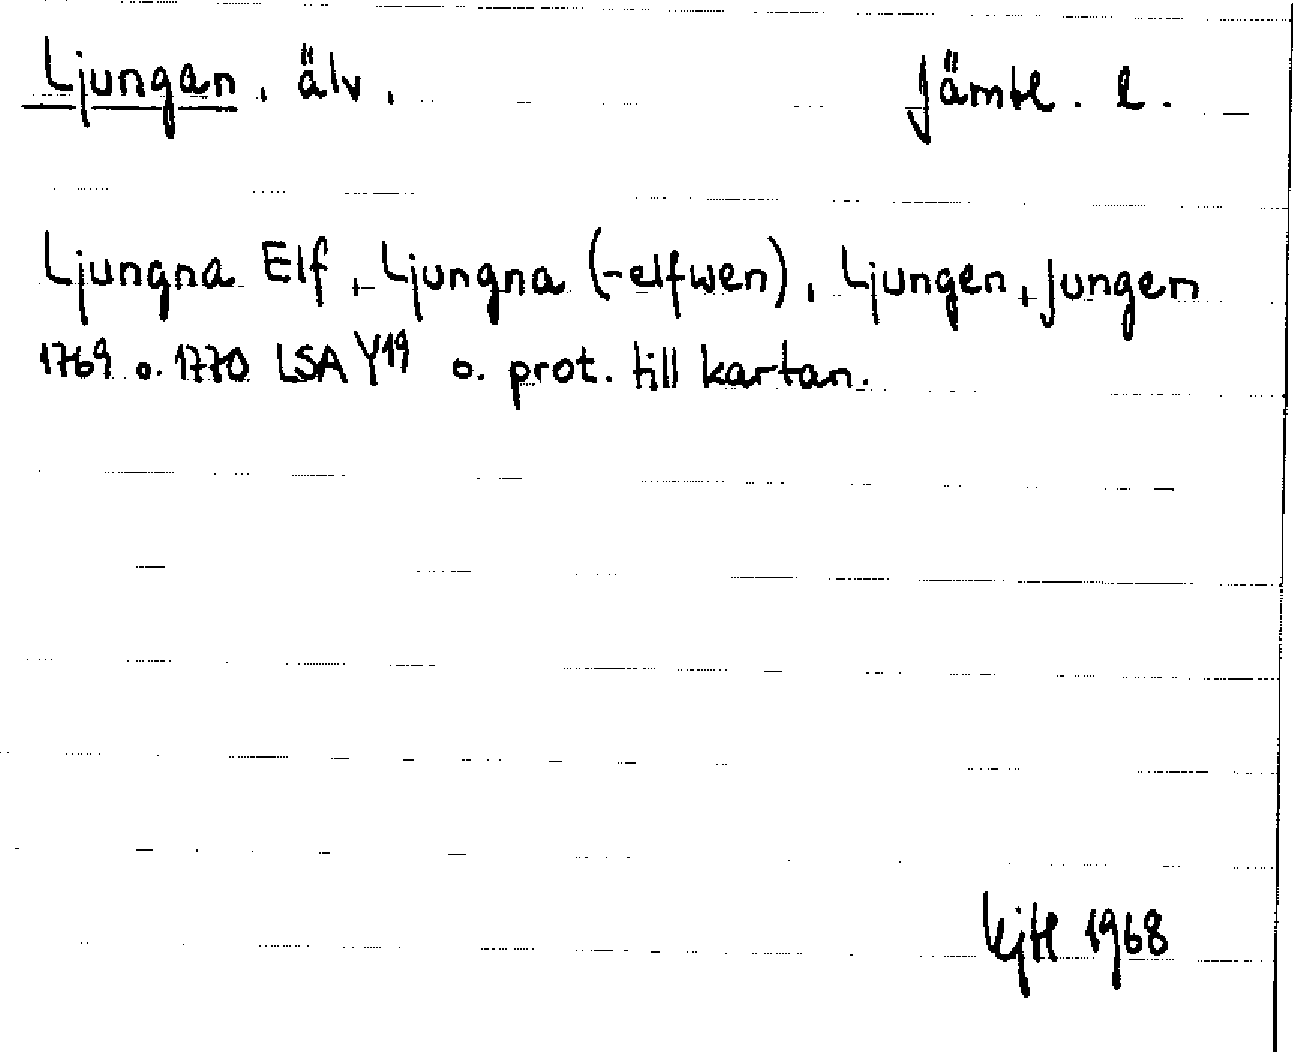 Ljungan, älv. Jämtl. l.
Ljungna Elf, Ljungna (-elfwen), Ljungen, Jungen
1769 o. 1770 LSA Y19 o. prot. till kartan.
1968